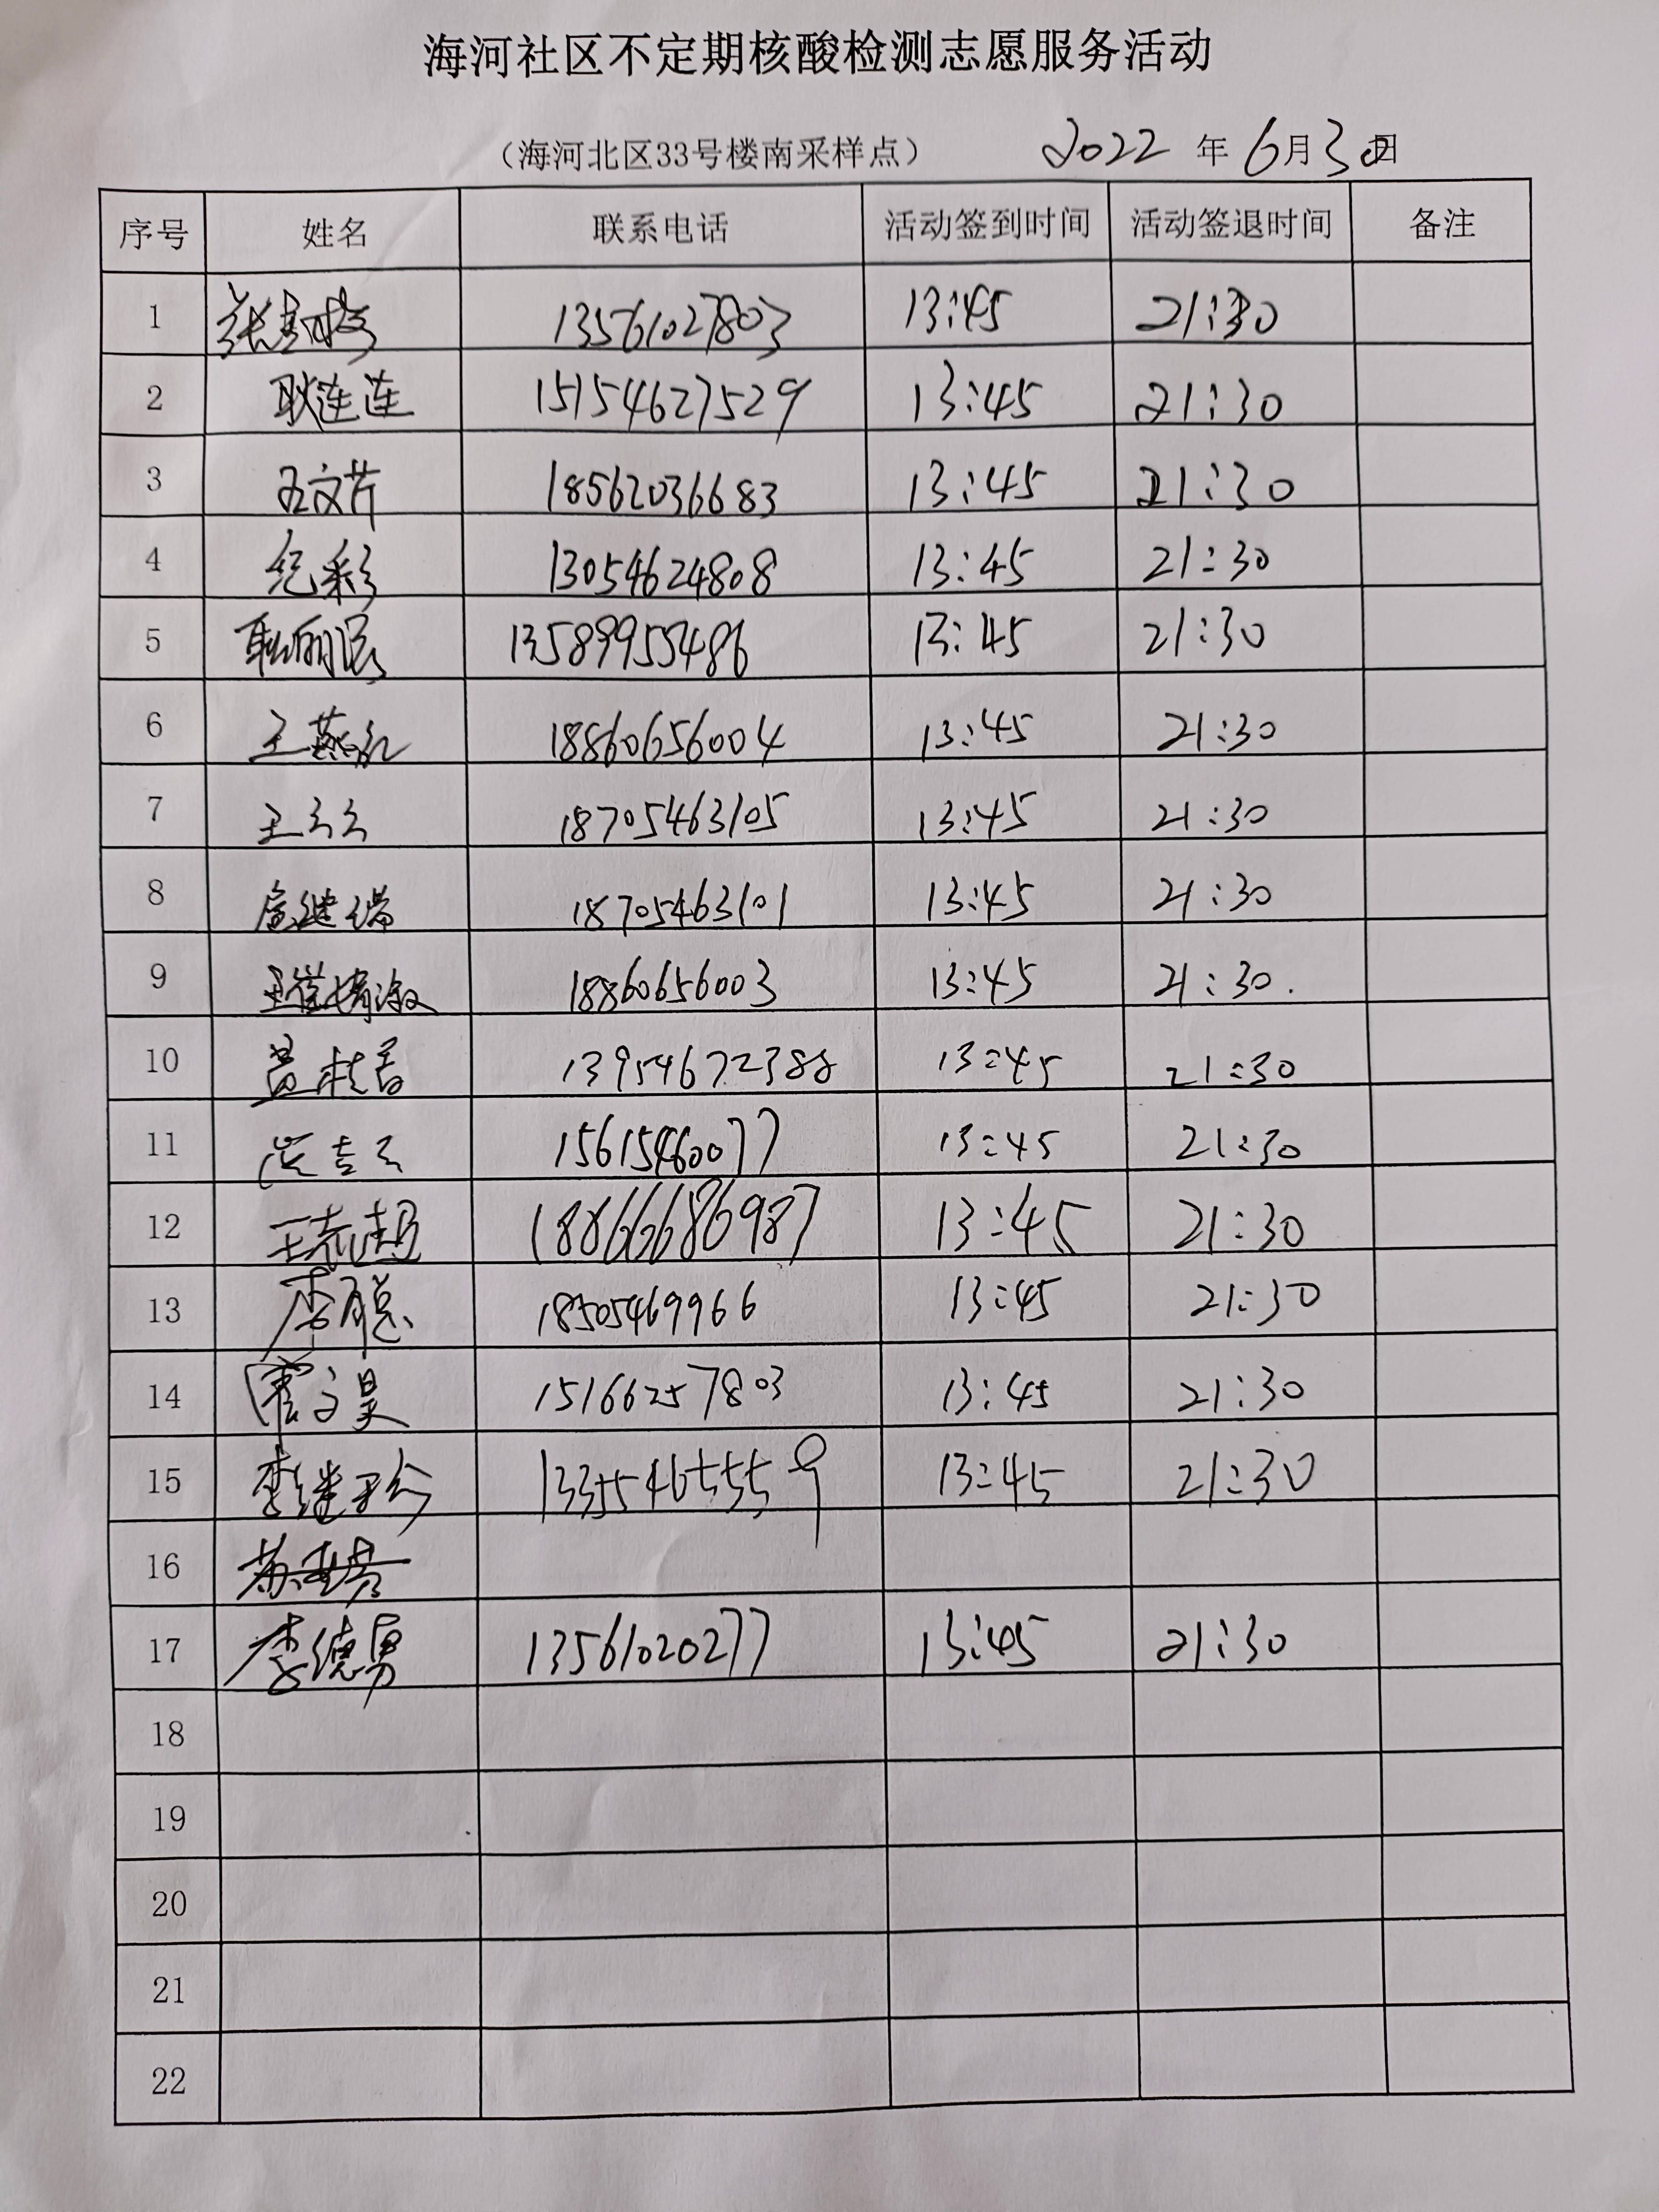 海河社区不定期核酸检测志愿服务活动
（海河北区33号楼南采样点） 2022 年 6月30日
序号 姓名 联系电话 活动签到时间 活动签退时间 备注
1 13561027803 13:45 21:30
2 耿连连 15154627529 13:45 21:30
3 王文芹 18562036683 13:45 21:30
4 纪彩 13054624808 13:45 21:30
5 13589955486 13:45 21:30
6 王燕红 18860656004 13:45 21:30
7 王云云 18705463105 13:45 21:30
8 18705463101 13:45 21:30
9 18860656003 13:45 21:30.
10 13954672388 13:45 21:30
11 15615460077 13:45 21:30
12 王志超 18866686987 13:45 21:30
13 李聪 18505469966 13:45 21:30
14 霍文昊 15166257803 13:45 21:30
15 李继珍 13355465559 13:45 21:30
16
17 李德勇 13561020277 13:45 21:30
18
19
20
21
22